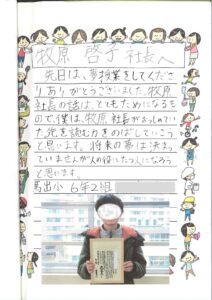 牧原 啓子 社長へ
先日は、夢授業をしてくださ
りありがとうございました。牧原
社長の話は、とてもためになるも
ので、僕は、牧原社長がおっしゃてい
た先を読む力をのばしていこう
と思います。将来の夢は決まっ
ていませんが人の役にたつ人になろう
と思います。
馬出小 6年2組